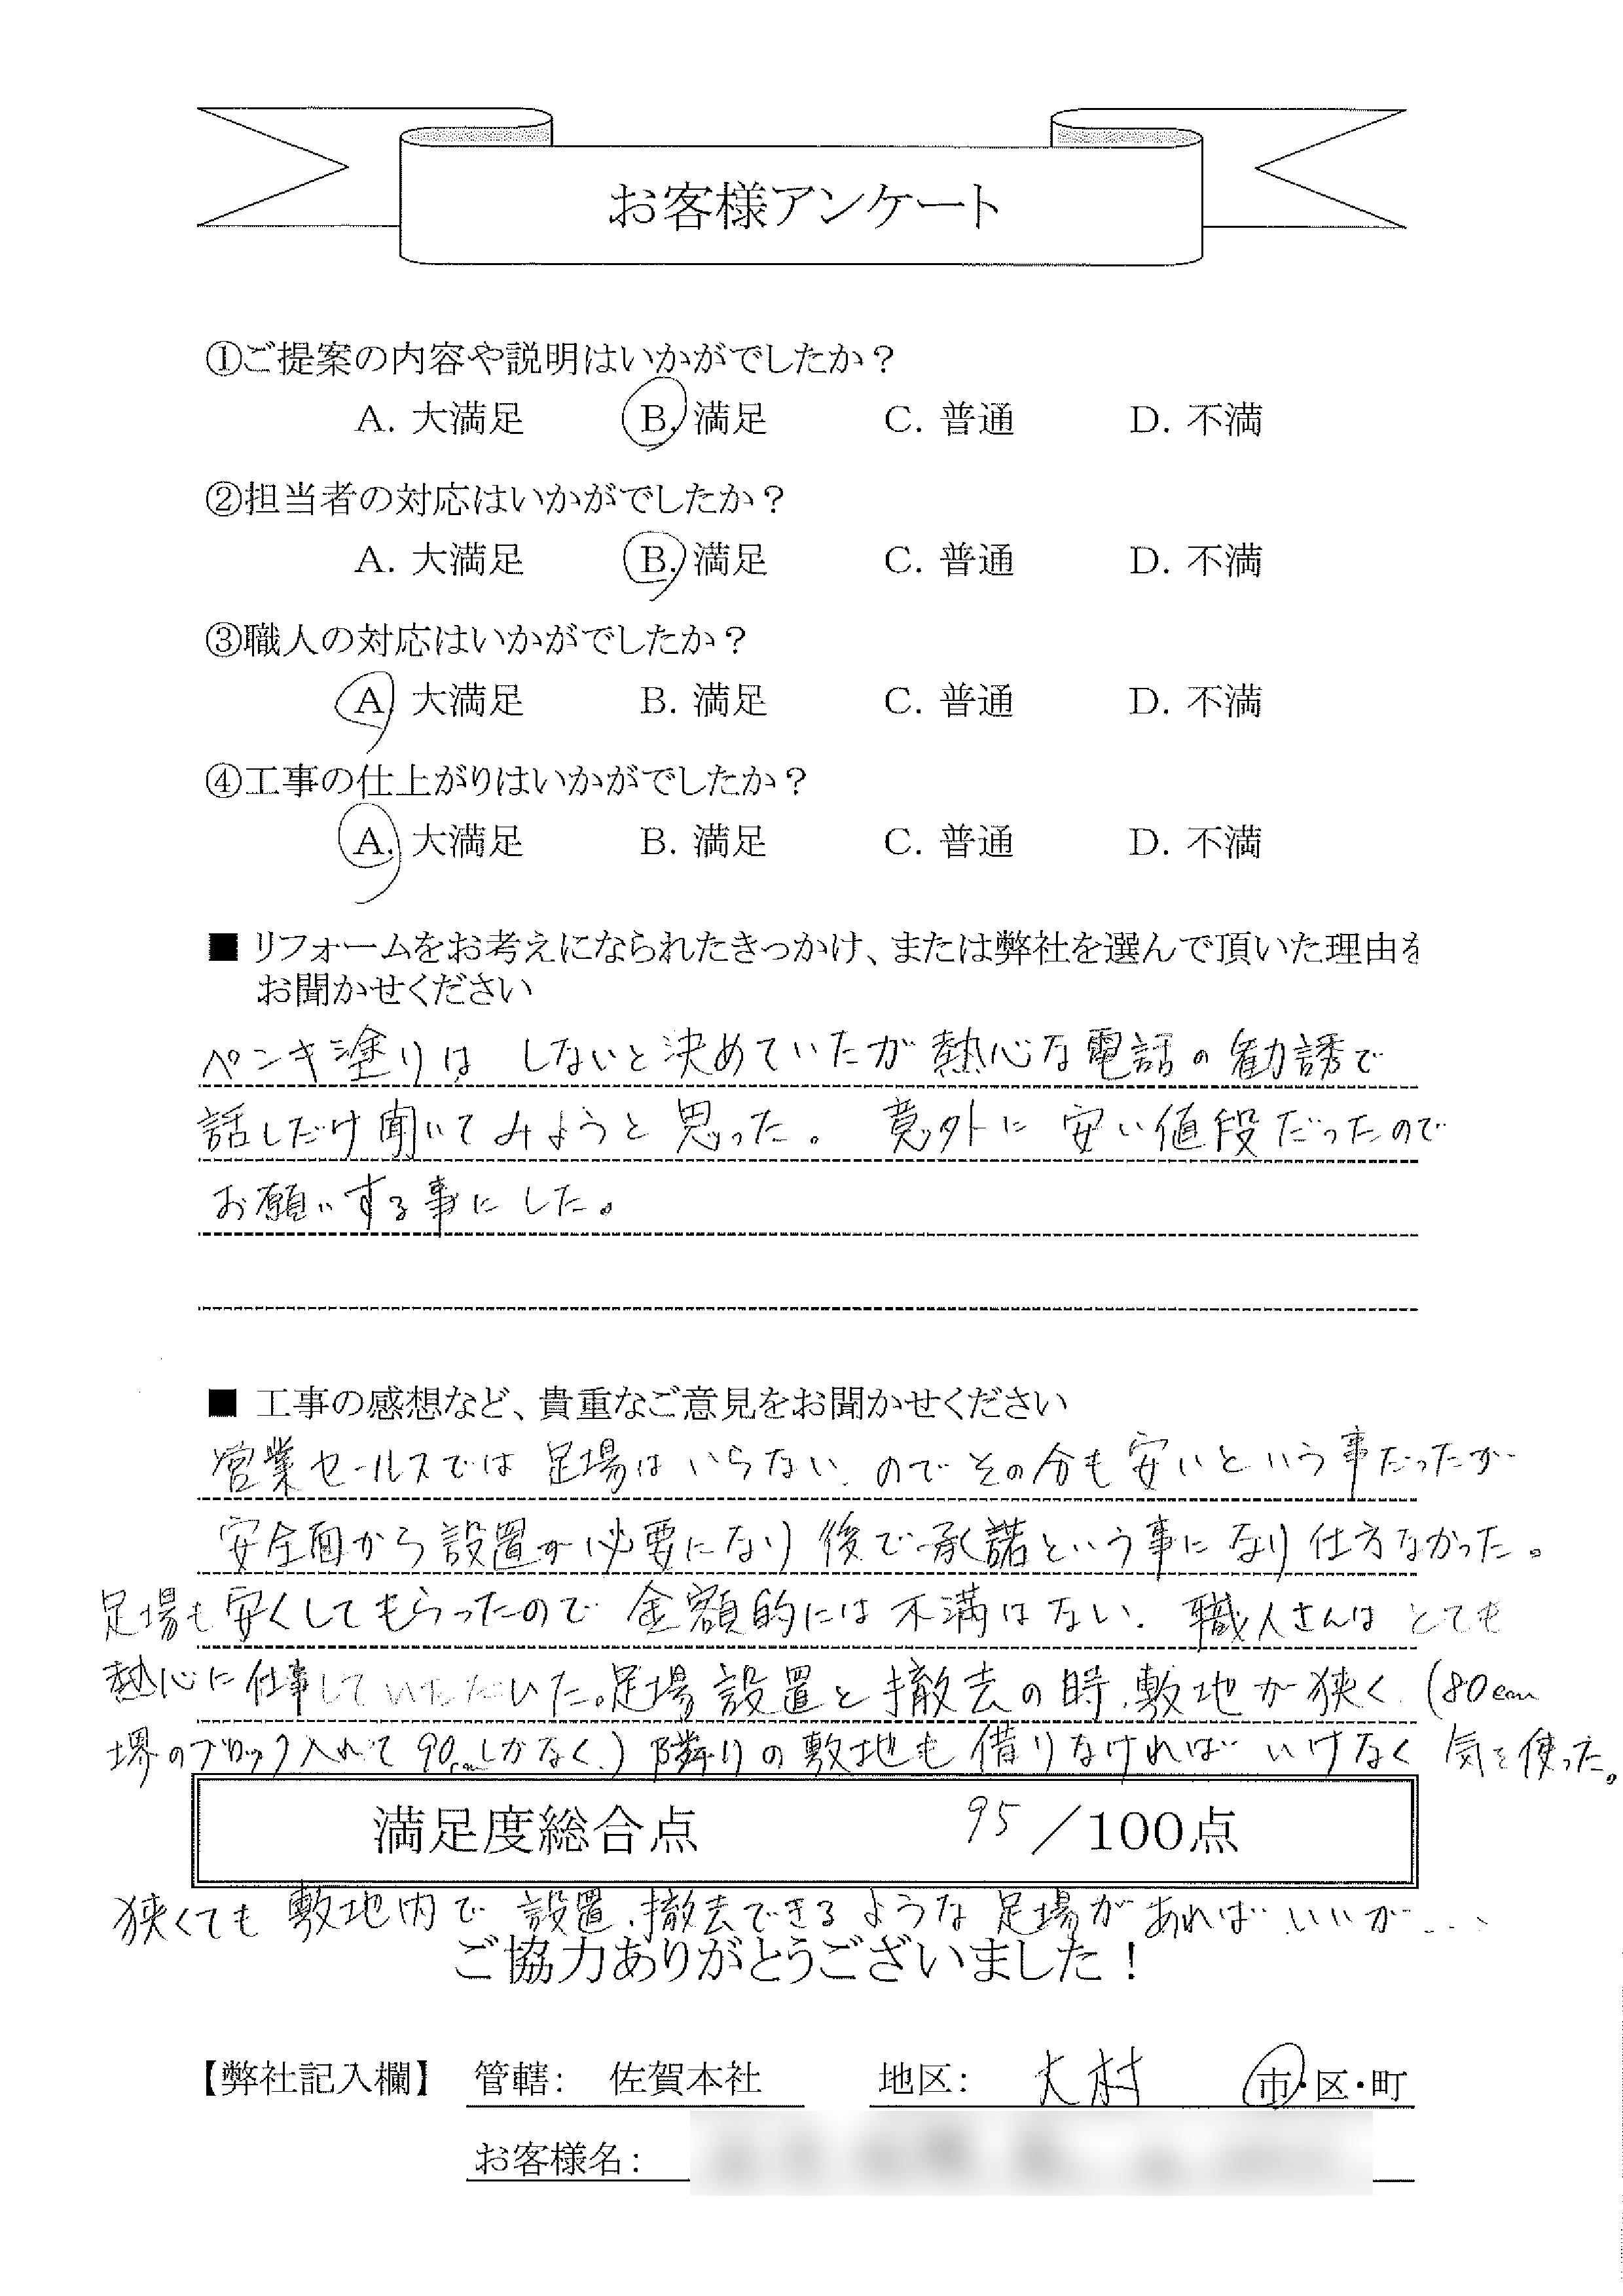 お客様アンケート
①ご提案の内容や説明はいかがでしたか？
A. 大満足 B. 満足 C. 普通 D. 不満
②担当者の対応はいかがでしたか？
A. 大満足 B. 満足 C. 普通 D. 不満
③職人の対応はいかがでしたか？
A. 大満足 B. 満足 C. 普通 D. 不満
④工事の仕上がりはいかがでしたか？
A. 大満足 B. 満足 C. 普通 D. 不満
■ リフォームをお考えになられたきっかけ、または弊社を選んで頂いた理由を
お聞かせください
ペンキ塗りは しないと決めていたが熱心な電話の勧誘で
話しだけ聞いてみようと思った。 意外に安い値段だったので
お願いする事にした。
■ 工事の感想など、貴重なご意見をお聞かせください
営業セールスでは足場はいらない、のでその分も安いという事だったが
安全面から設置が必要になり後で承諾という事になり仕方なかった。
足場も安くしてもらったので金額的には不満はない、職人さんはとても
熱心に仕事していただいた。足場設置と撤去の時、敷地が狭く、(80cm
堺のブロック入れて90cmしかなく、)隣りの敷地も借りなければいけなく 気を使った。
満足度総合点 95／100点
狭くても敷地内で設置、撤去できるような足場があればいいが…
ご協力ありがとうございました！
【弊社記入欄】 管轄： 佐賀本社 地区： 大村 市・区・町
お客様名：